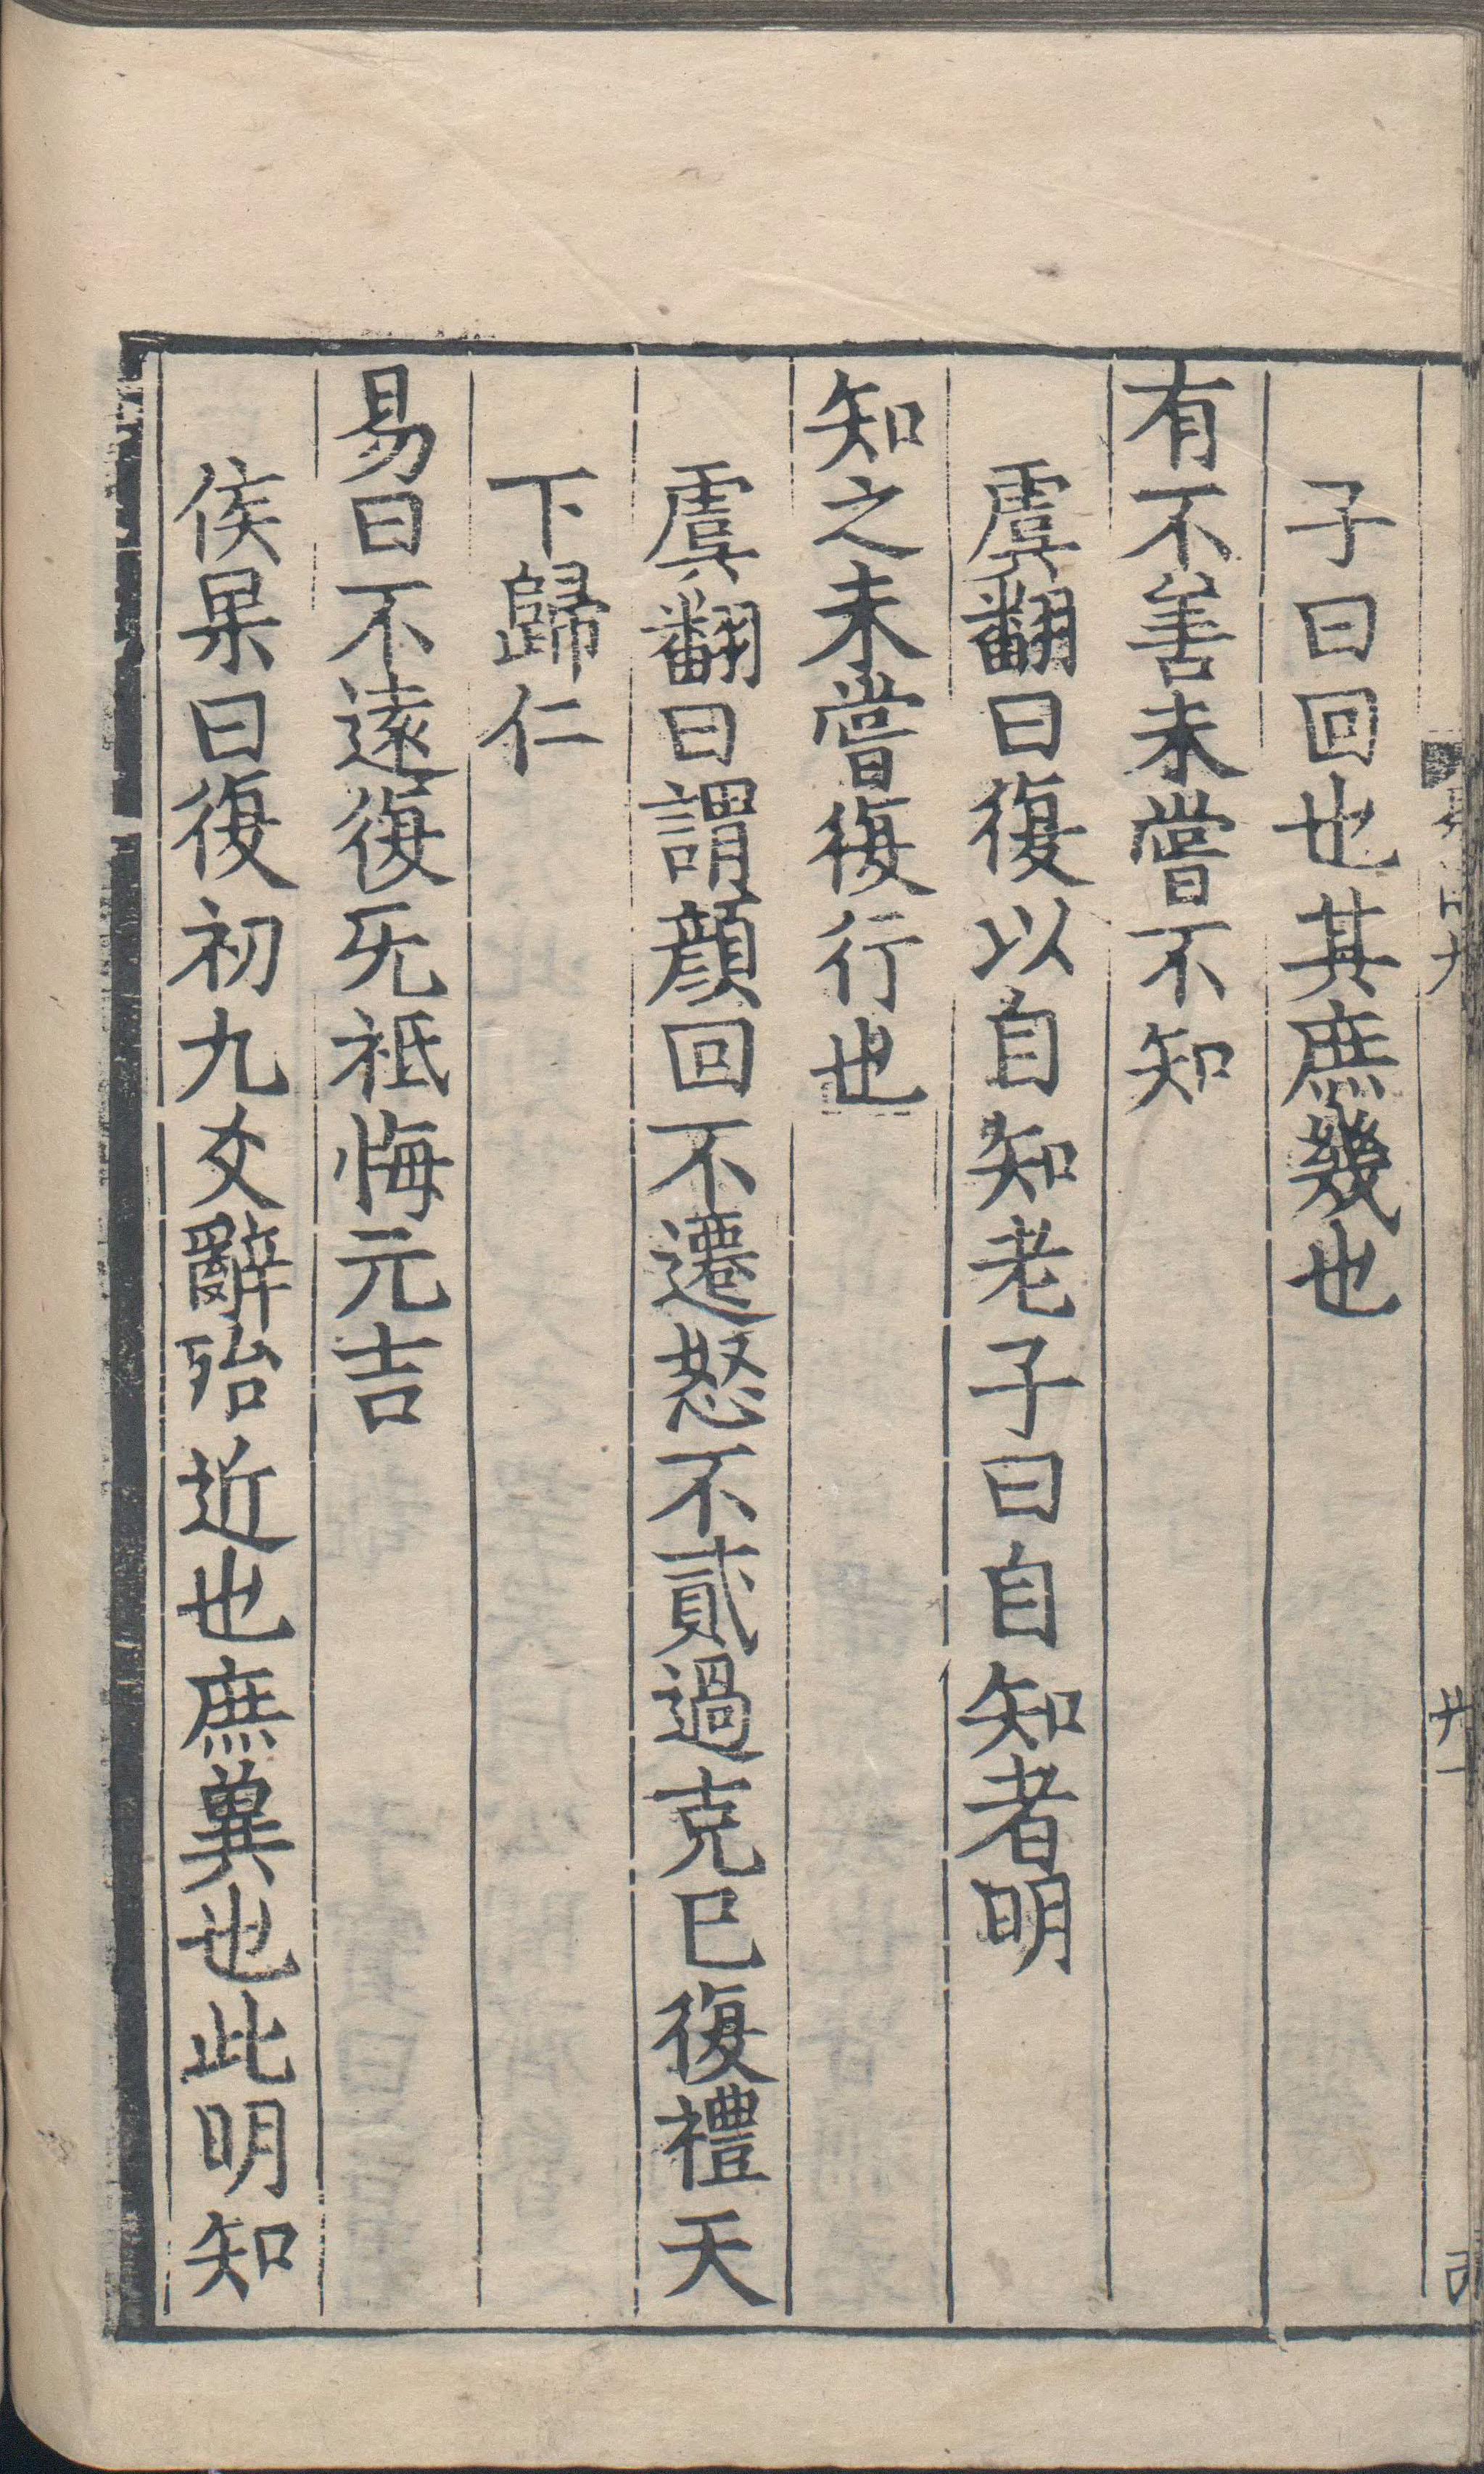 子曰回也其庶幾也
有不善未嘗不知
虞翻曰復以自知老子曰自知者明
知之未嘗復行也
虞翻曰謂顔回不遷怒不貳過克巳復禮天
下歸仁
易曰不遠復旡祗悔元吉
侯果曰復初九爻辭殆近也庶兾也此明知